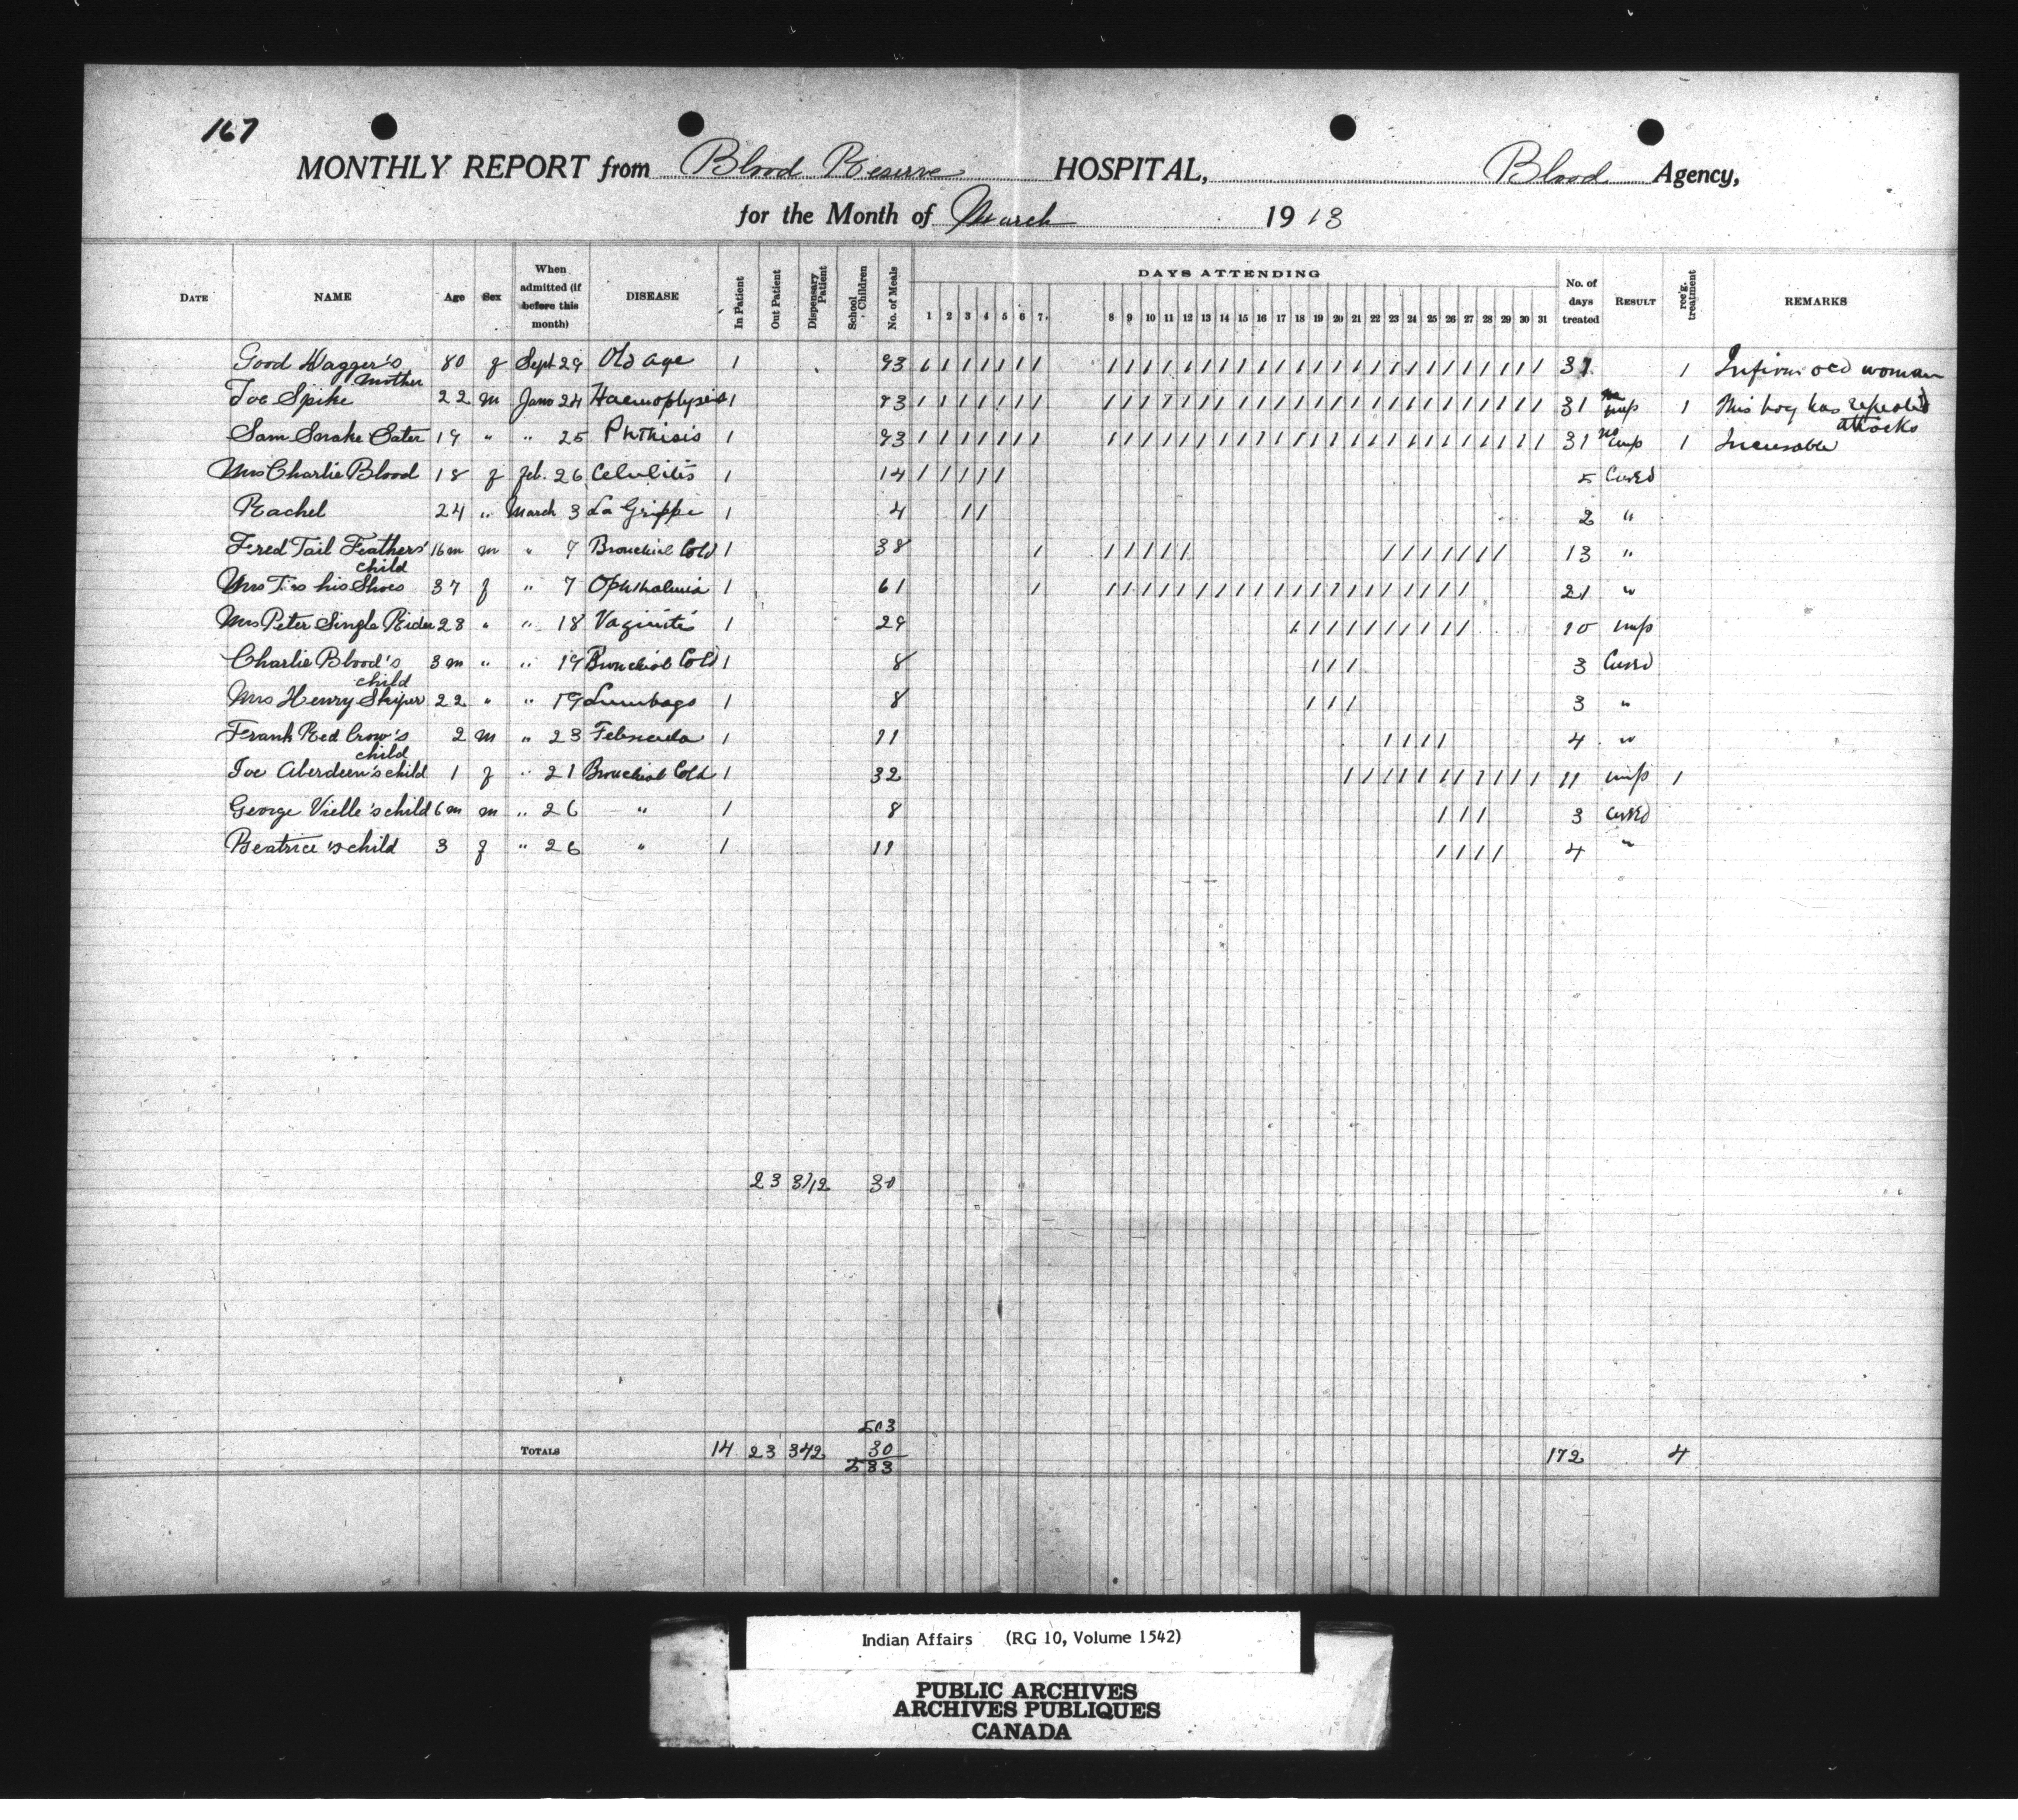 167
MONTHLY REPORT from Blood Reserve HOSPITAL, Blood Agency,
for the Month of March 1913
DATE NAME Age Sex When admitted (if before this month) DISEASE In Patient Out Patient Dispensary Patient School Children No. of Meals DAYS ATTENDING 1 2 3 4 5 6 7 8 9 10 11 12 13 14 15 16 17 18 19 20 21 22 23 24 25 26 27 28 29 30 31 No. of days treated RESULT rec'g. treatment REMARKS
Good Wagger's mother 80 f Sept 29 Old age 1 93 1 1 1 1 1 1 1 1 1 1 1 1 1 1 1 1 1 1 1 1 1 1 1 1 1 1 1 1 1 1 1 31 1 Infirm old woman
Joe Spike 22 m Jan 24 Haemoptysis 1 93 1 1 1 1 1 1 1 1 1 1 1 1 1 1 1 1 1 1 1 1 1 1 1 1 1 1 1 1 1 1 1 31 no imp 1 This boy has repeated attacks
Sam Snake Eater 19 " " 25 Phthisis 1 93 1 1 1 1 1 1 1 1 1 1 1 1 1 1 1 1 1 1 1 1 1 1 1 1 1 1 1 1 1 1 1 31 no imp 1 Incurable
Mrs Charlie Blood 18 f Feb. 26 Celulitis 1 14 1 1 1 1 1 5 Cured
Rachel 24 " March 3 La Grippe 1 4 1 1 2 "
Fred Tail Feathers' child 16m m " 7 Bronchial Cold 1 38 1 1 1 1 1 1 1 1 1 1 1 1 1 13 "
Mrs Ties his Shoes 37 f " 7 Ophthalmia 1 61 1 1 1 1 1 1 1 1 1 1 1 1 1 1 1 1 1 1 1 1 1 21 "
Mrs Peter Single Rider 28 " " 18 Vaginitis 1 29 1 1 1 1 1 1 1 1 1 1 10 imp
Charlie Blood's child 3m " " 19 Bronchial Cold 1 8 1 1 1 3 Cured
Mrs Henry 22 " " 19 Lumbago 1 8 1 1 1 3 "
Frank Red Crow's child 2 m " 23 1 11 1 1 1 1 4 "
Joe Aberdeen's child 1 f " 21 Bronchial Cold 1 32 1 1 1 1 1 1 1 1 1 1 1 11 imp 1
George Vielle's child 6m m " 26 " 1 8 1 1 1 3 cured
Beatrice's child 3 f " 26 " 1 11 1 1 1 1 4 "
23 342 30
503
TOTALS 14 23 342 30 172 4
533
Indian Affairs (RG 10, Volume 1542)
PUBLIC ARCHIVES
ARCHIVES PUBLIQUES
CANADA